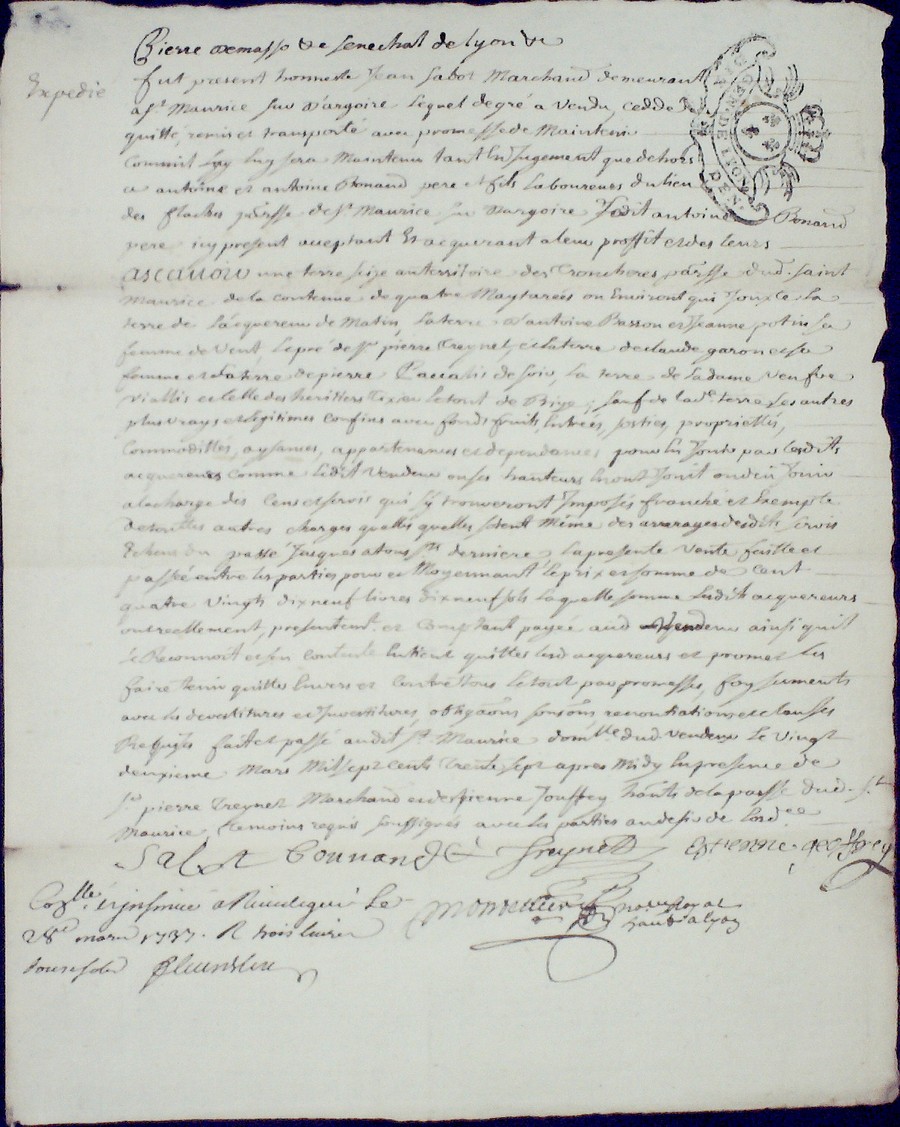 Pierre Demasso &c senechal de lyon &c
Expedie
fut present honneste Jean Sabot Marchand demeurant
a St Maurice sur d'argoire lequel de gré a vendu, cedde
quitté, remis et transporté avec promesse de Maintenir
comme luy sera Maintenu tant en Jugement que dehors
a antoine et antoine Bonnand pere et fils laboureurs du lieu
des flaches parsse de St Maurice sur dargoire ledit antoine Bonnand
pere icy present acceptant et acquerant a leur proffit et des leurs
ascavoir une terre size au territoire des Troncheres parsse dud. saint
Maurice de la contenue de quatre Maytarées ou Environt qui Jouxte la
terre de l'acquereur de Matin, la terre d'antoine Basson et Jeanne potin sa
femme de vent, le pré de Sr pierre Treynet, et la terre de claude garon et sa
femme et la terre de pierre de soir, la terre de la dame veufve
Viallis et celle des heritiers Tixier le tout de Bize; sauf de lad. terre ses autres
plus vrays et legitimes confins avec fonds fruits, Entrées, sorties, proprietés,
Commodittés, aysances, appartenances et dependances pour en Jouir par lesdits
acquereurs comme ledit vendeur ou ses hauteurs en ont Jouit ou deü Jouir
a la charge des cens et servis qui s'y trouveront Imposés franche et Exempte
de touttes autres charges quelles quelles soient Même des arrerages desdits servis
Echeus du passé Jusques a tous Sts derniere la presente vente faitte et
passée entre les parties pour et Moyennant le prix et somme de cent
quatre vingts dix neuf livres dix neuf sols laquelle somme lesdits acquereurs
ont reellement, presentemt. et comptant payée aud vendeur ainsi quil
le Reconnoit et s'en contente Entient quittes lesd acquereurs et promet les
faire tenir quittes Envers et Contre tous le tout par promesses, foy, serments
avec les devestitures et Investitures, obligaons soumons renontiations et clauses
Requises fait et passé audit St. Maurice domlle dud vendeur le vingt
deuxieme Mars Mil sept cents trente sept apres Midy En presence de
Sr pierre Treynet Marchand et destienne Jouffrey hants de la parsse dud. St
Maurice, temoins requis soussignés avec les parties au desir de lordce
Sabot Bonnand Treynet Estienne geoffrey
Conllé insinué a Rivedegier le
28e mars 1737. R trois livres
douze sols
notre Royal